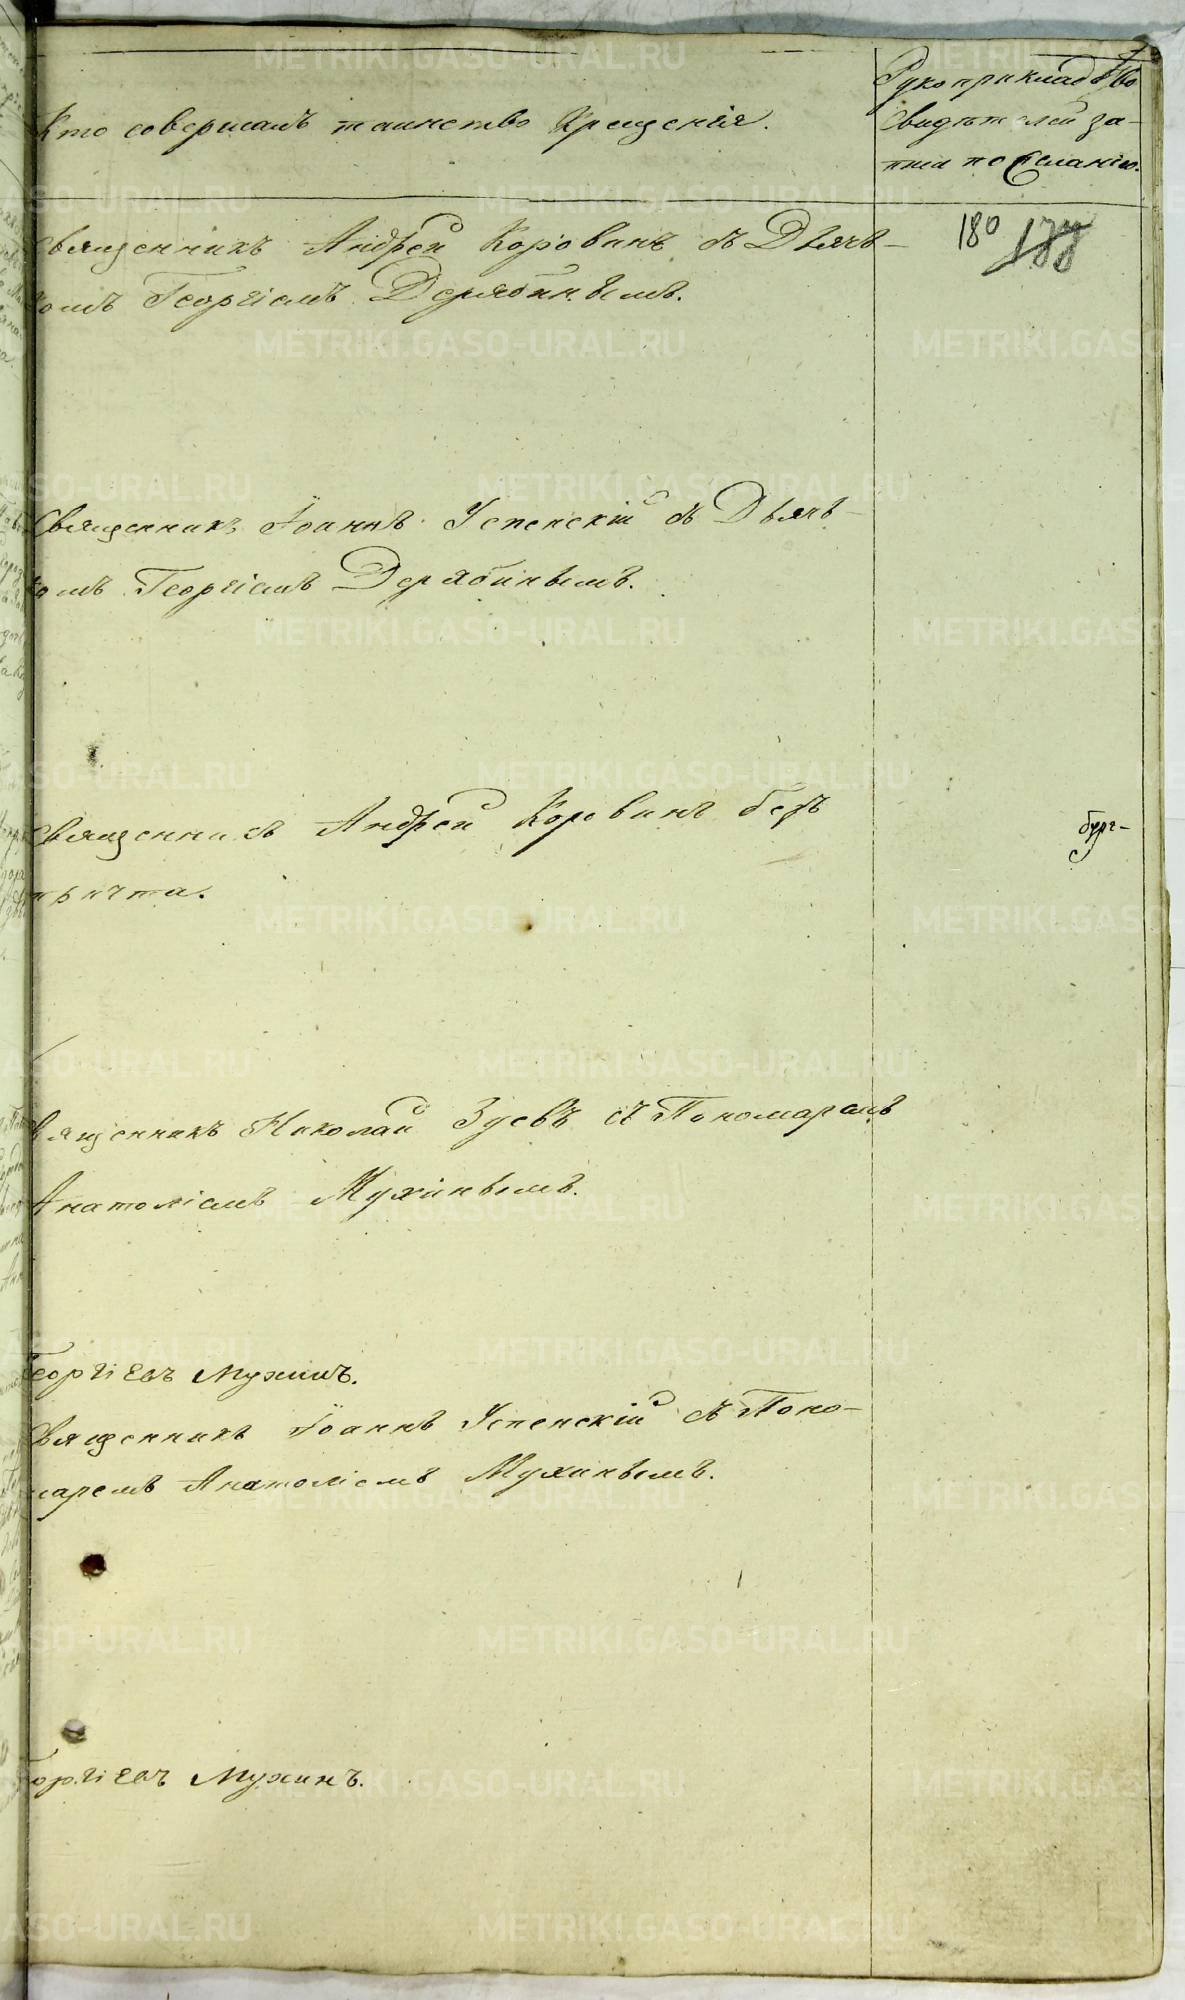 Кто совершалъ таинство Крещенія.
Рукоприкладство
свидѣтелей за-
писи по желанію.
180 177
Священникъ Андрей Коровинъ съ Дьяч-
комъ Георгіемъ Дерябинымъ.
Священникъ Іоаннъ Успенскій съ Дьяч-
комъ Георгіемъ Дерябинымъ.
Священникъ Андрей Коровинъ безъ
причта.
Священникъ Николай Зуевъ съ Пономаремъ
Анатоліемъ Мухинымъ.
Георгіевъ Мухинъ.
Священникъ Іоаннъ Успенскій съ Поно-
маремъ Анатоліемъ Мухинымъ.
Георгіевъ Мухинъ.
METRIKI.GASO-URAL.RU